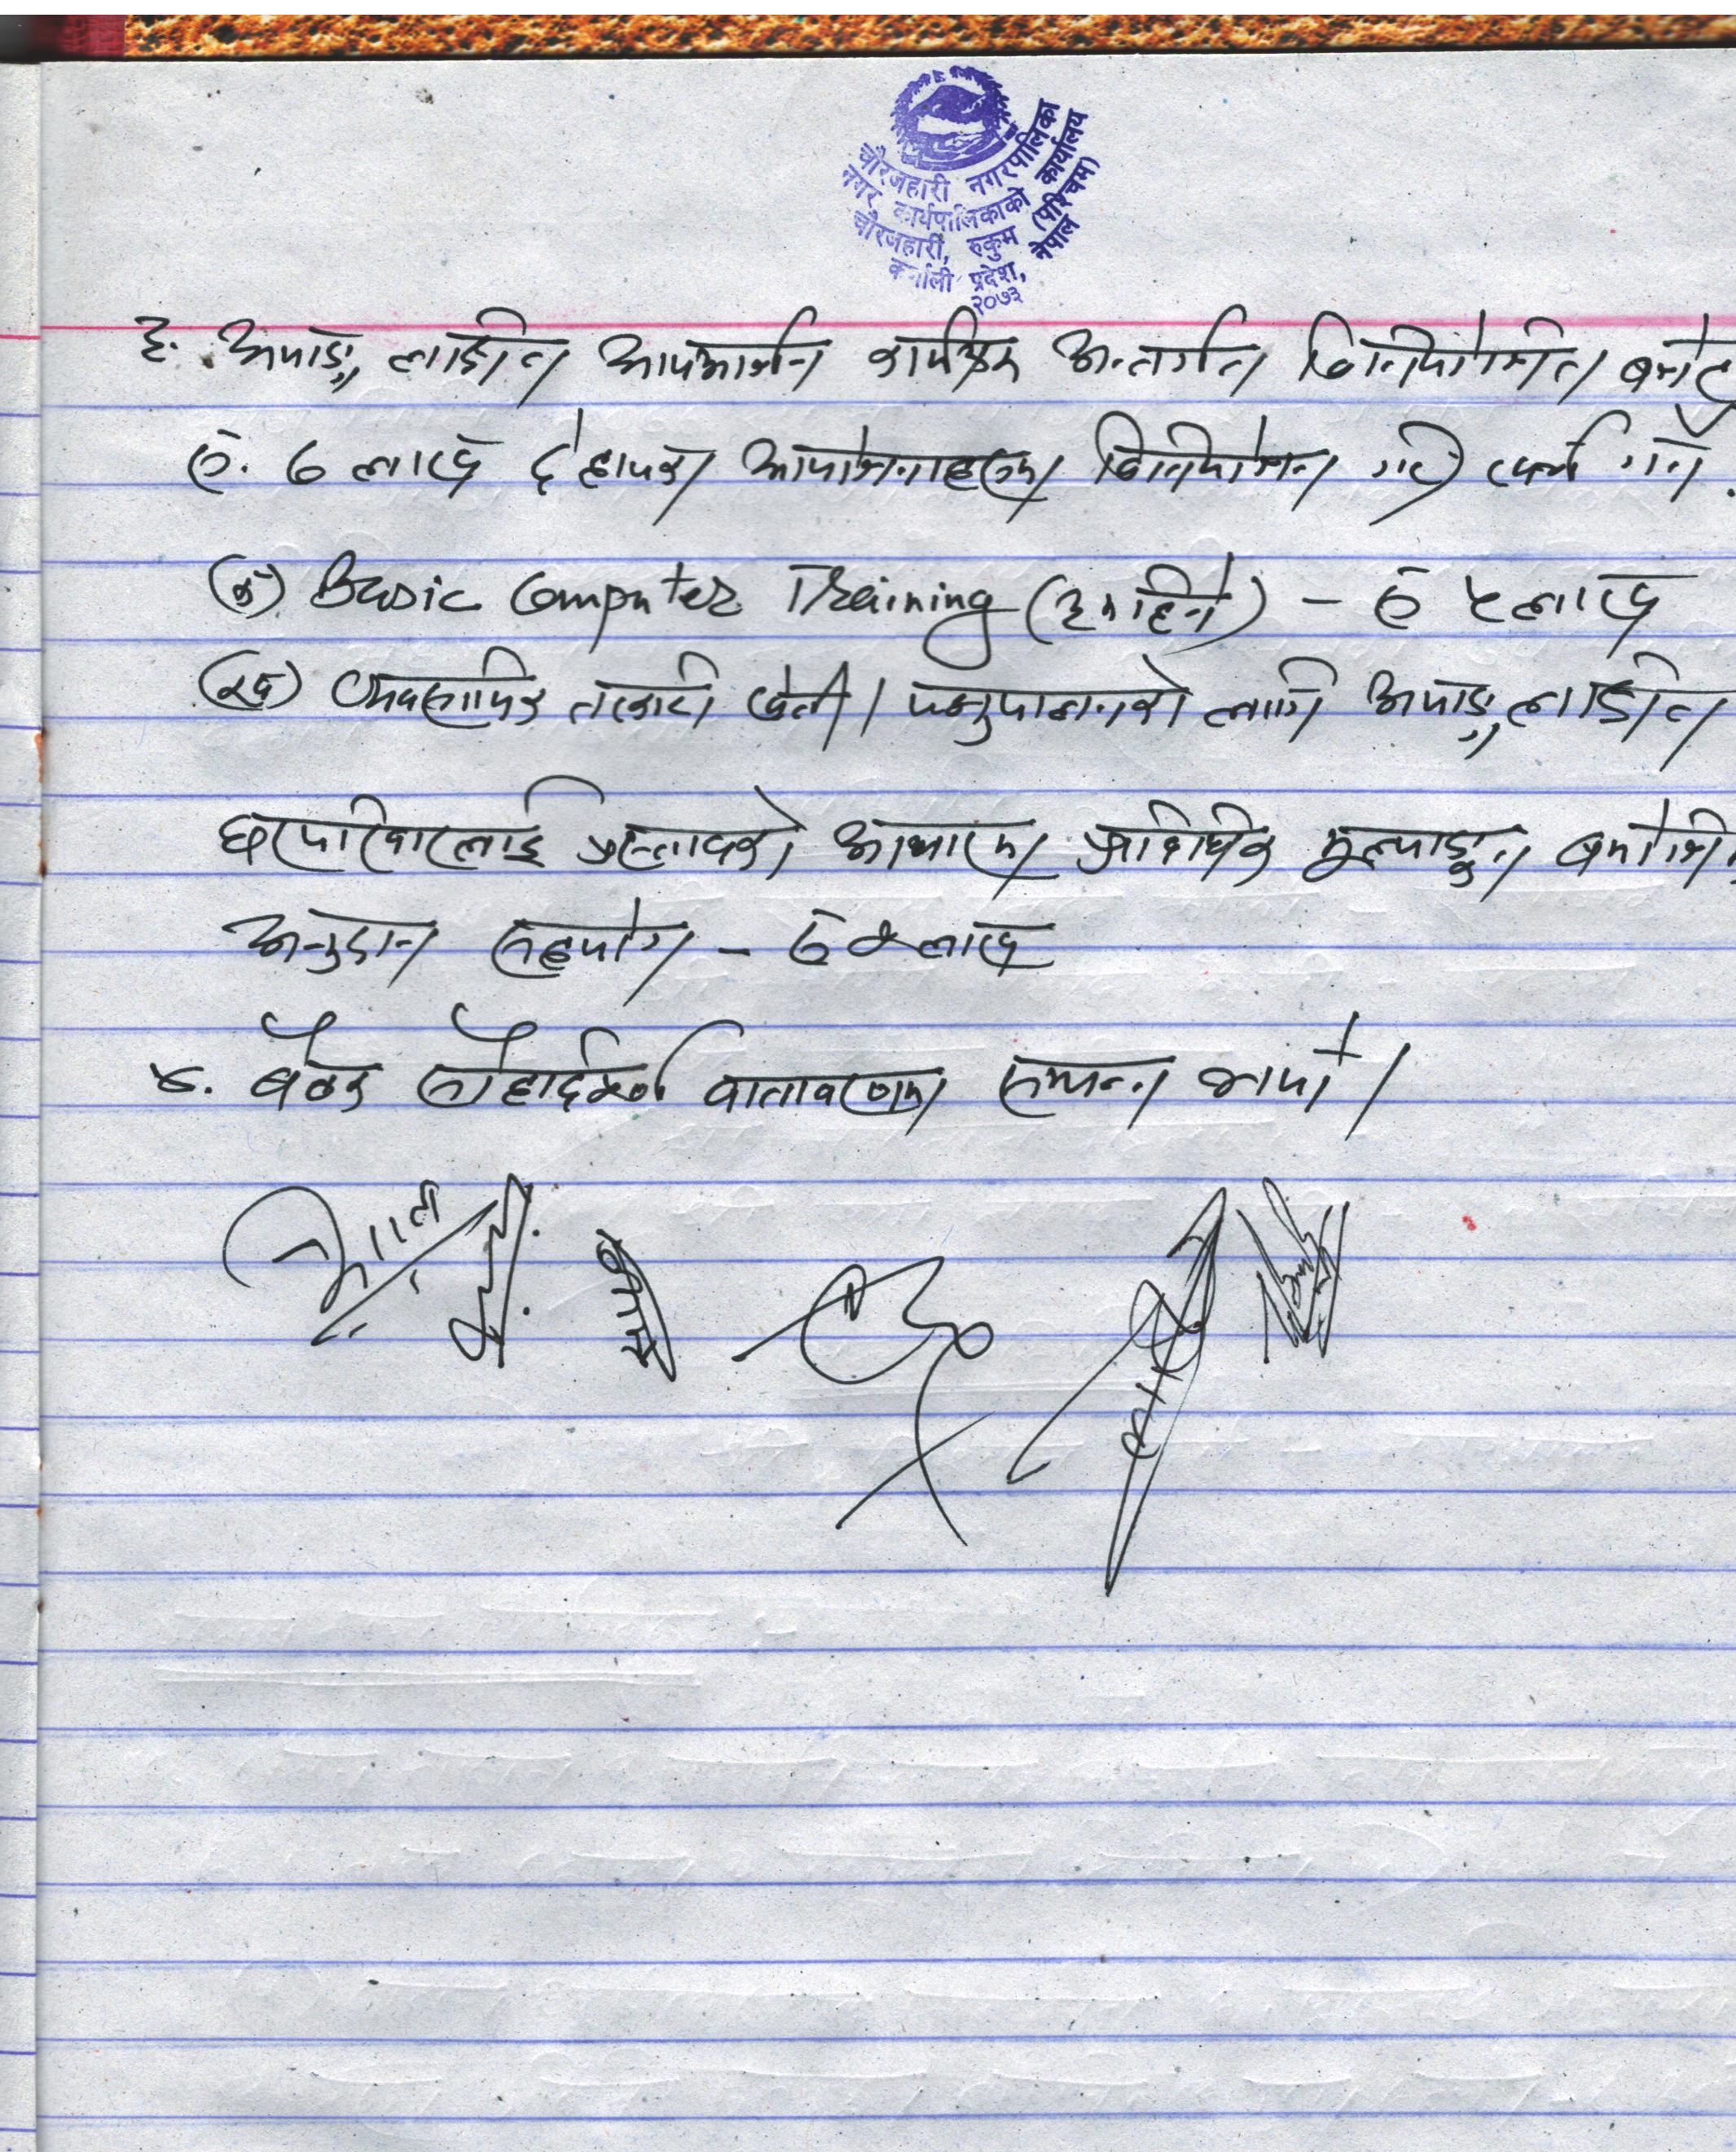 चौरजहारी नगरपालिका
नगर कार्यपालिकाको कार्यालय
चौरजहारी, रुकुम (पश्चिम)
कर्णाली प्रदेश, नेपाल
२०७३
३. अपाङ्ग लक्षित आयआर्जन कार्यक्रम अन्तर्गत विनियोजित बजेट
रु. ७ लाख देहायका आयोजनाहरुमा विनियोजन गरी खर्च गर्ने.
(क) Basic Computer Training (३ महिने) – रु ५ लाख
(ख) व्यवसायिक तरकारी खेती/पशुपालनको लागि अपाङ्ग लक्षित
घरपरिवारलाई प्रस्तावको आधारमा प्राविधिक मूल्याङ्कन बमोजिम
अनुदान सहयोग – रु २ लाख
४. बैठक सौहार्दपूर्ण वातावरणमा सम्पन्न भयो।